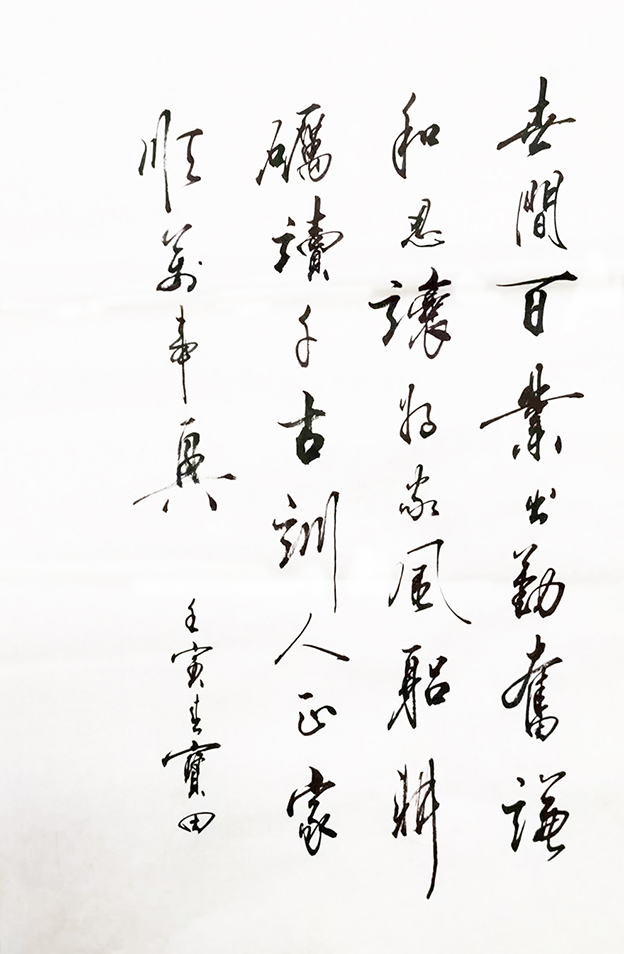 世間百業出勤奮謙
和忍讓好家風躳耕
礪讀千古訓人正家
順萬事興
壬寅春寶田